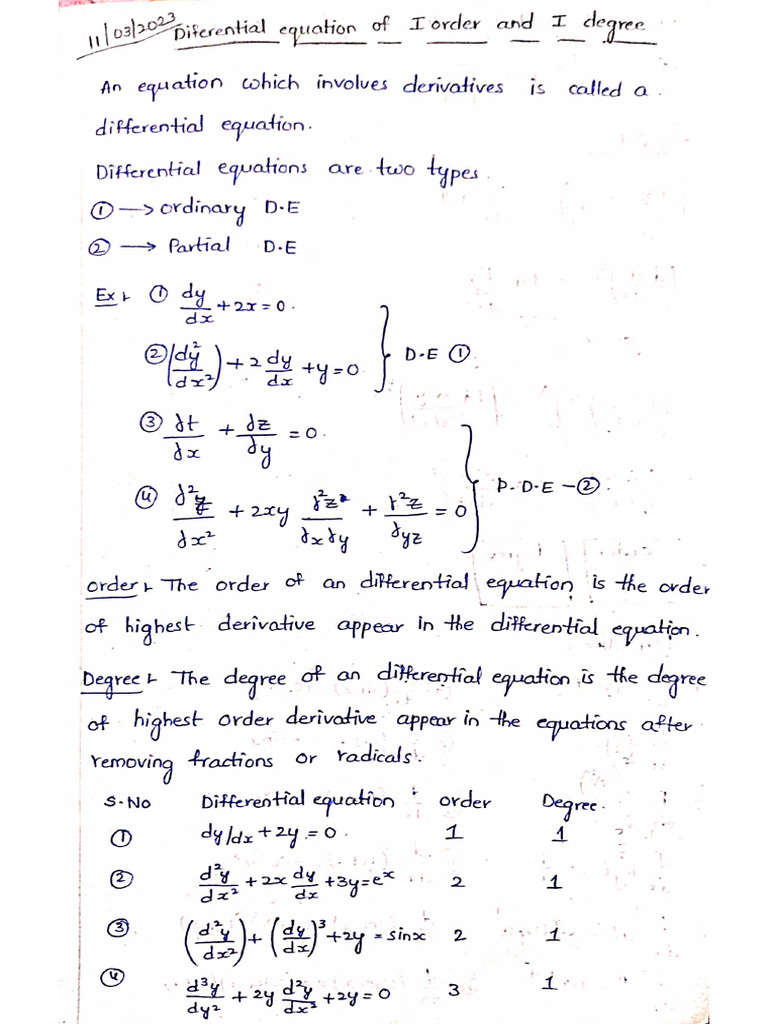 11/03/2023 Diferential equation of I order and I degree
An equation which involves derivatives is called a
differential equation.
Differential equations are two types.
① → ordinary D.E
② → Partial D.E
Ex:- ① dy/dx + 2x = 0.
② (dy²/dx²) + 2 dy/dx + y = 0 } D.E ①
③ ∂t/∂x + ∂z/∂y = 0.
④ ∂²z/∂x² + 2xy ∂²z/∂x∂y + ∂²z/∂yz = 0 } P.D.E - ②.
order:- The order of an differential equation is the order
of highest derivative appear in the differential equation.
Degree:- The degree of an differential equation is the degree
of highest order derivative appear in the equations after
removing fractions or radicals.
S.No Differential equation order Degree.
① dy/dx + 2y = 0. 1 1
② d²y/dx² + 2x dy/dx + 3y = eˣ 2 1
③ (d²y/dx²) + (dy/dx)³ + 2y = sinx 2 1
④ d³y/dy² + 2y d²y/dx² + 2y = 0 3 1